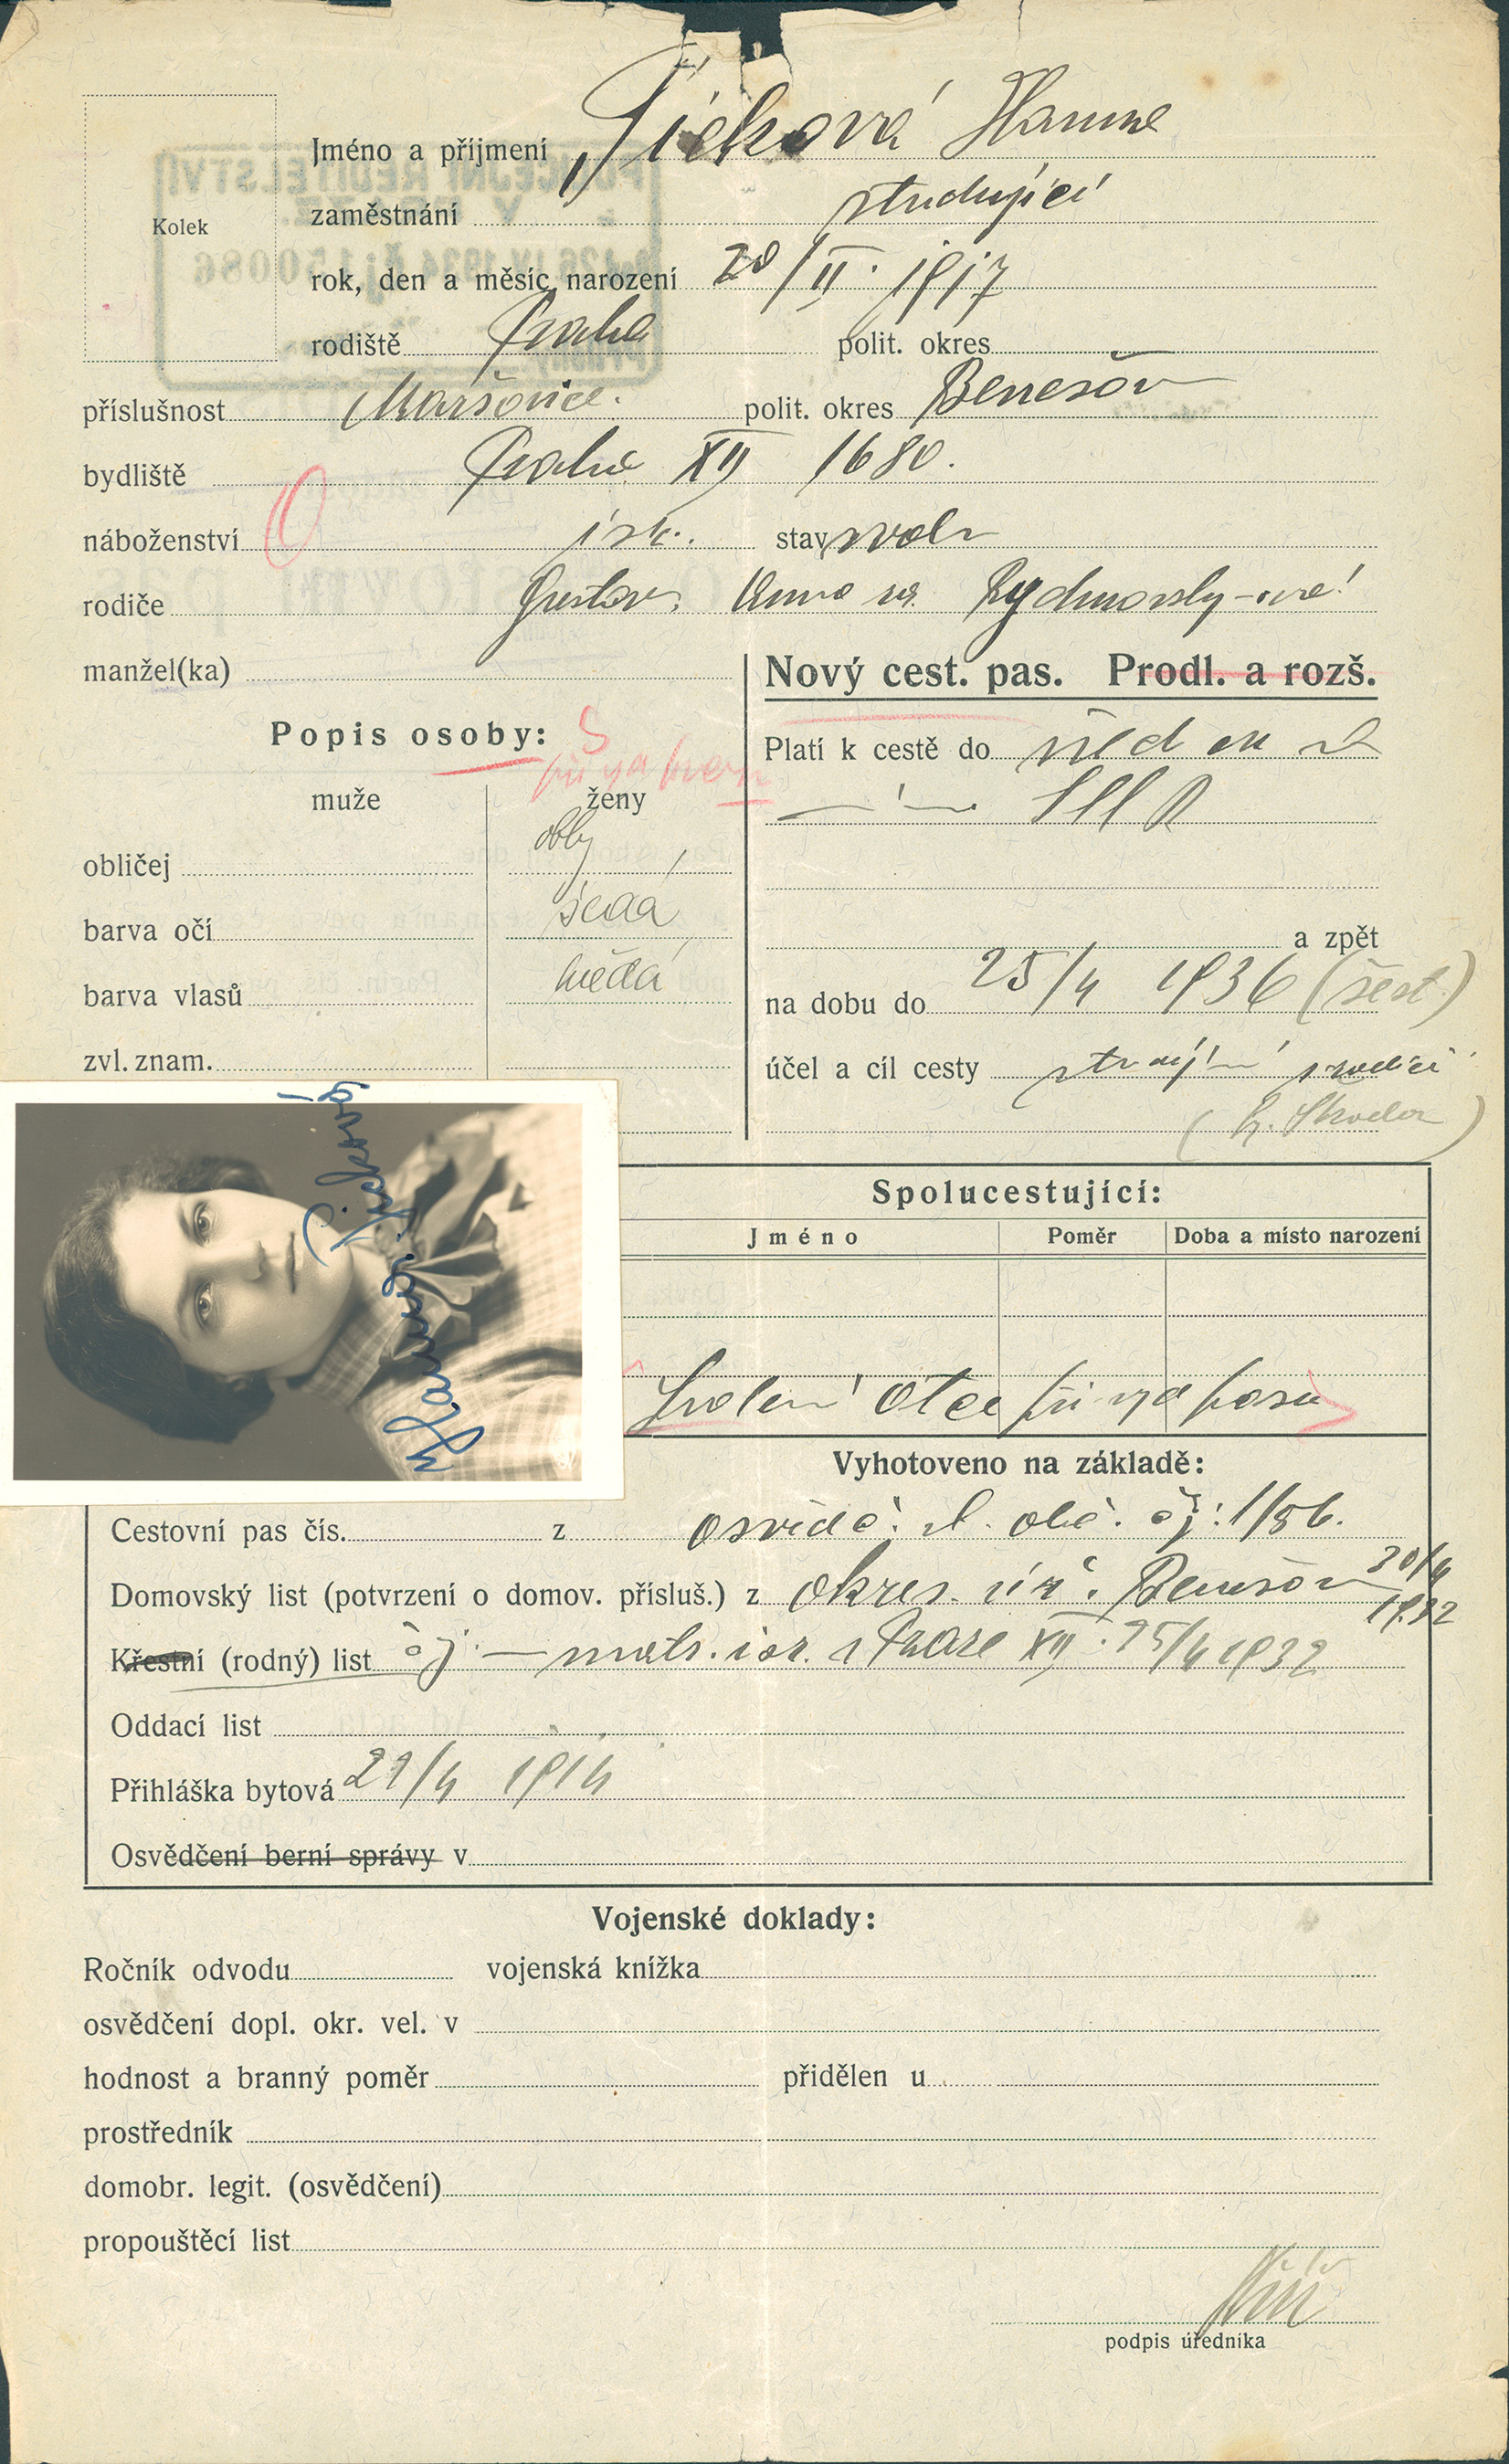 Kolek
Jméno a příjmení Picková Hanna
zaměstnání studující
rok, den a měsíc narození 20/II. 1917
rodiště Praha polit. okres
příslušnost Maršovice. polit. okres Benešov
bydliště Praha XII 1680.
náboženství isr. stav svob
rodiče Gustav, Anna
manžel(ka)
Nový cest. pas. Prodl. a rozš.
Popis osoby:
Platí k cestě do
muže ženy
obličej oblý
barva očí šedá
barva vlasů hnědá
zvl. znam.
a zpět
na dobu do 25/4 1936 (šest)
účel a cíl cesty
Hanna Picková
Spolucestující:
Jméno Poměr Doba a místo narození
otce při
Vyhotoveno na základě:
Cestovní pas čís. z osvědč. čj: 1/86.
Domovský list (potvrzení o domov. přísluš.) z okres. úř. Benešov 30/4 1932
Křestní (rodný) list čj. — matr. isr. Praze XII. 25/4 1932
Oddací list
Přihláška bytová 21/4 1914
Osvědčení berní správy v
Vojenské doklady:
Ročník odvodu vojenská knížka
osvědčení dopl. okr. vel. v
hodnost a branný poměr přidělen u
prostředník
domobr. legit. (osvědčení)
propouštěcí list
podpis úředníka